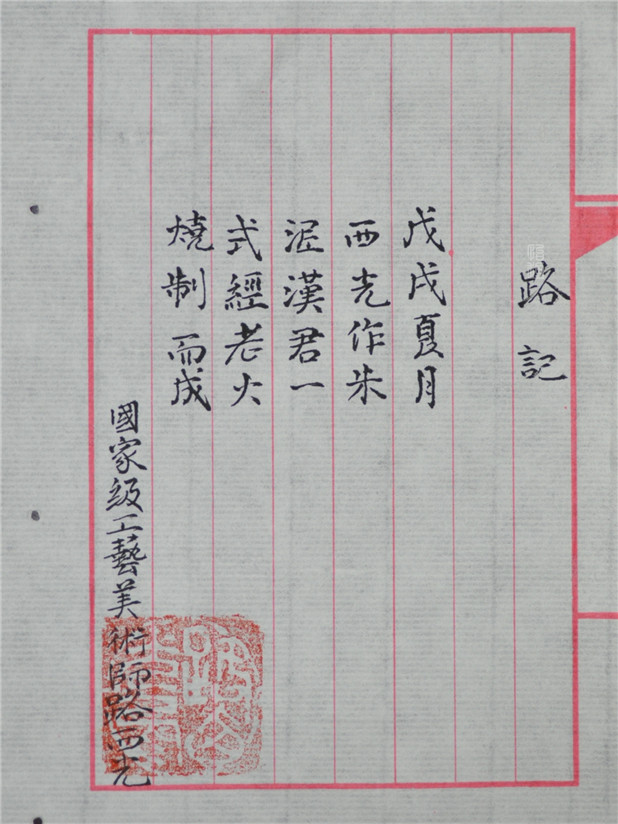 路記
戊戌夏月
西光作朱
泥漢君一
式經老火
燒制而成
國家級工藝美術師路西光